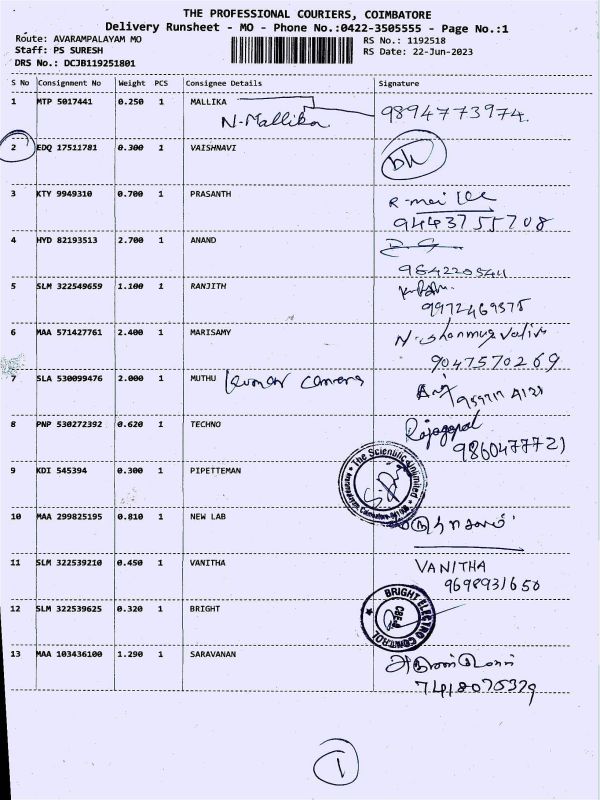 THE PROFESSIONAL COURIERS, COIMBATORE
Delivery Runsheet - MO - Phone No.:0422-3505555 - Page No.:1
Route: AVARAMPALAYAM MO RS No.: 1192518
Staff: PS SURESH RS Date: 22-Jun-2023
DRS No.: DCJB119251801
S No Consignment No Weight PCS Consignee Details Signature
1 MTP 5017441 0.250 1 MALLIKA 9894773974.
N-Mallika
2 EDQ 17511781 0.300 1 VAISHNAVI
3 KTY 9949310 0.700 1 PRASANTH
9443755708
4 HYD 82193513 2.700 1 ANAND
5 SLM 322549659 1.100 1 RANJITH
9972469375
6 MAA 571427761 2.400 1 MARISAMY
9047570269
7 SLA 530099476 2.000 1 MUTHU Kumar camera
8 PNP 530272392 0.620 1 TECHNO Rajagopal
9860477721
9 KDI 545394 0.300 1 PIPETTEMAN The Scientific Unlimited
10 MAA 299825195 0.810 1 NEW LAB
11 SLM 322539210 0.450 1 VANITHA VANITHA
9698931650
12 SLM 322539625 0.320 1 BRIGHT BRIGHT ELECTRO CONTROL
13 MAA 103436100 1.290 1 SARAVANAN
7418075379
1